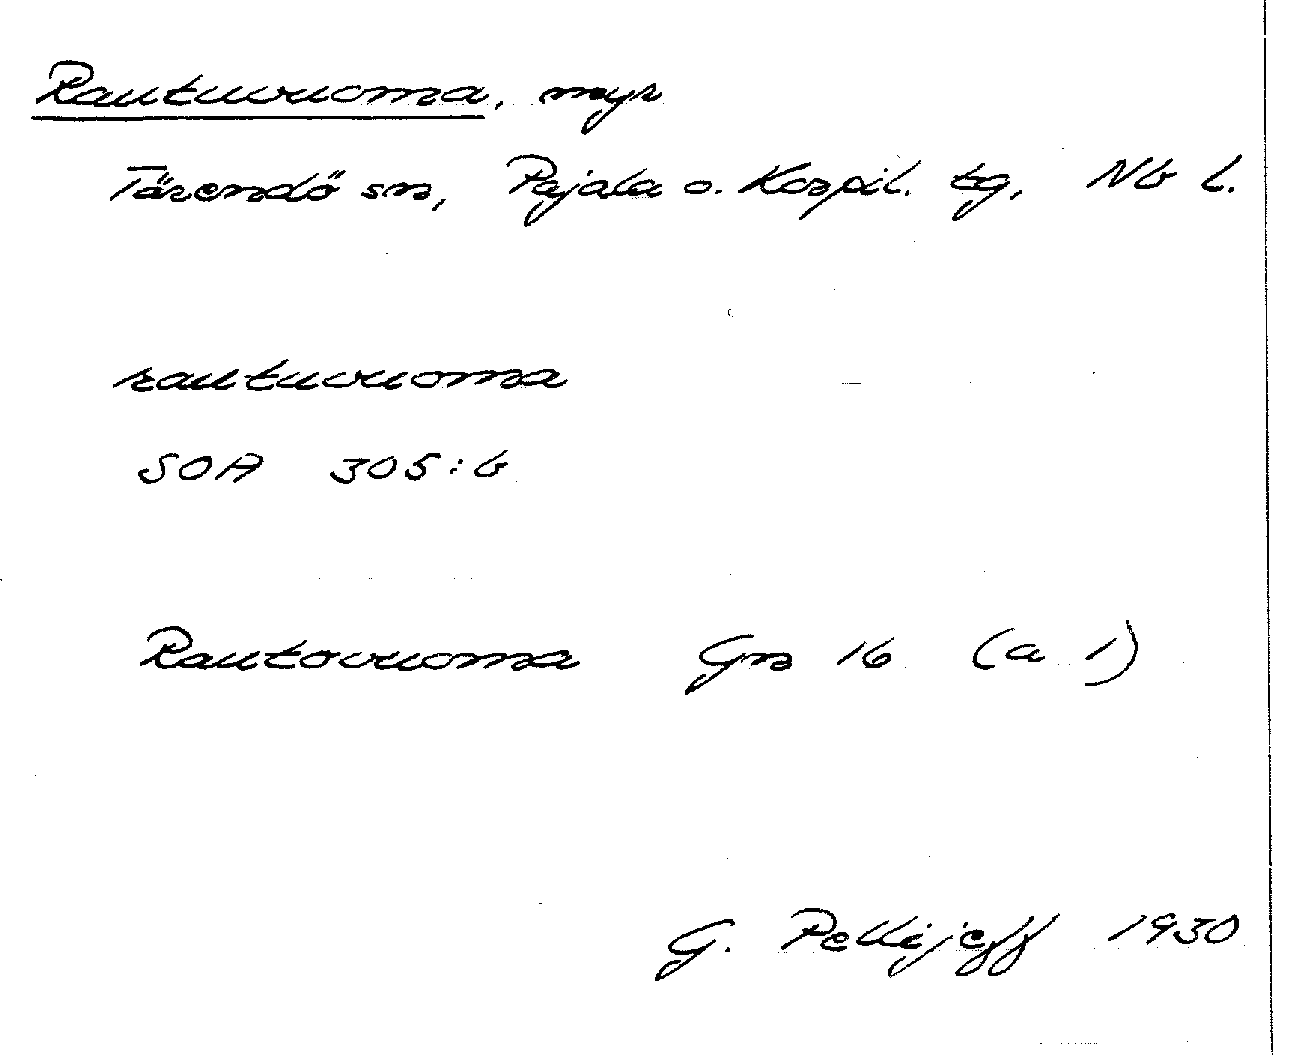 Rautuvuoma, myr
Tärendö sn, Pajala o. Korpil. tg, Nb l.
rautuvuoma
SOA 305:6
Rautovuoma Gn 16 (a 1)
G. Pellijeff 1930